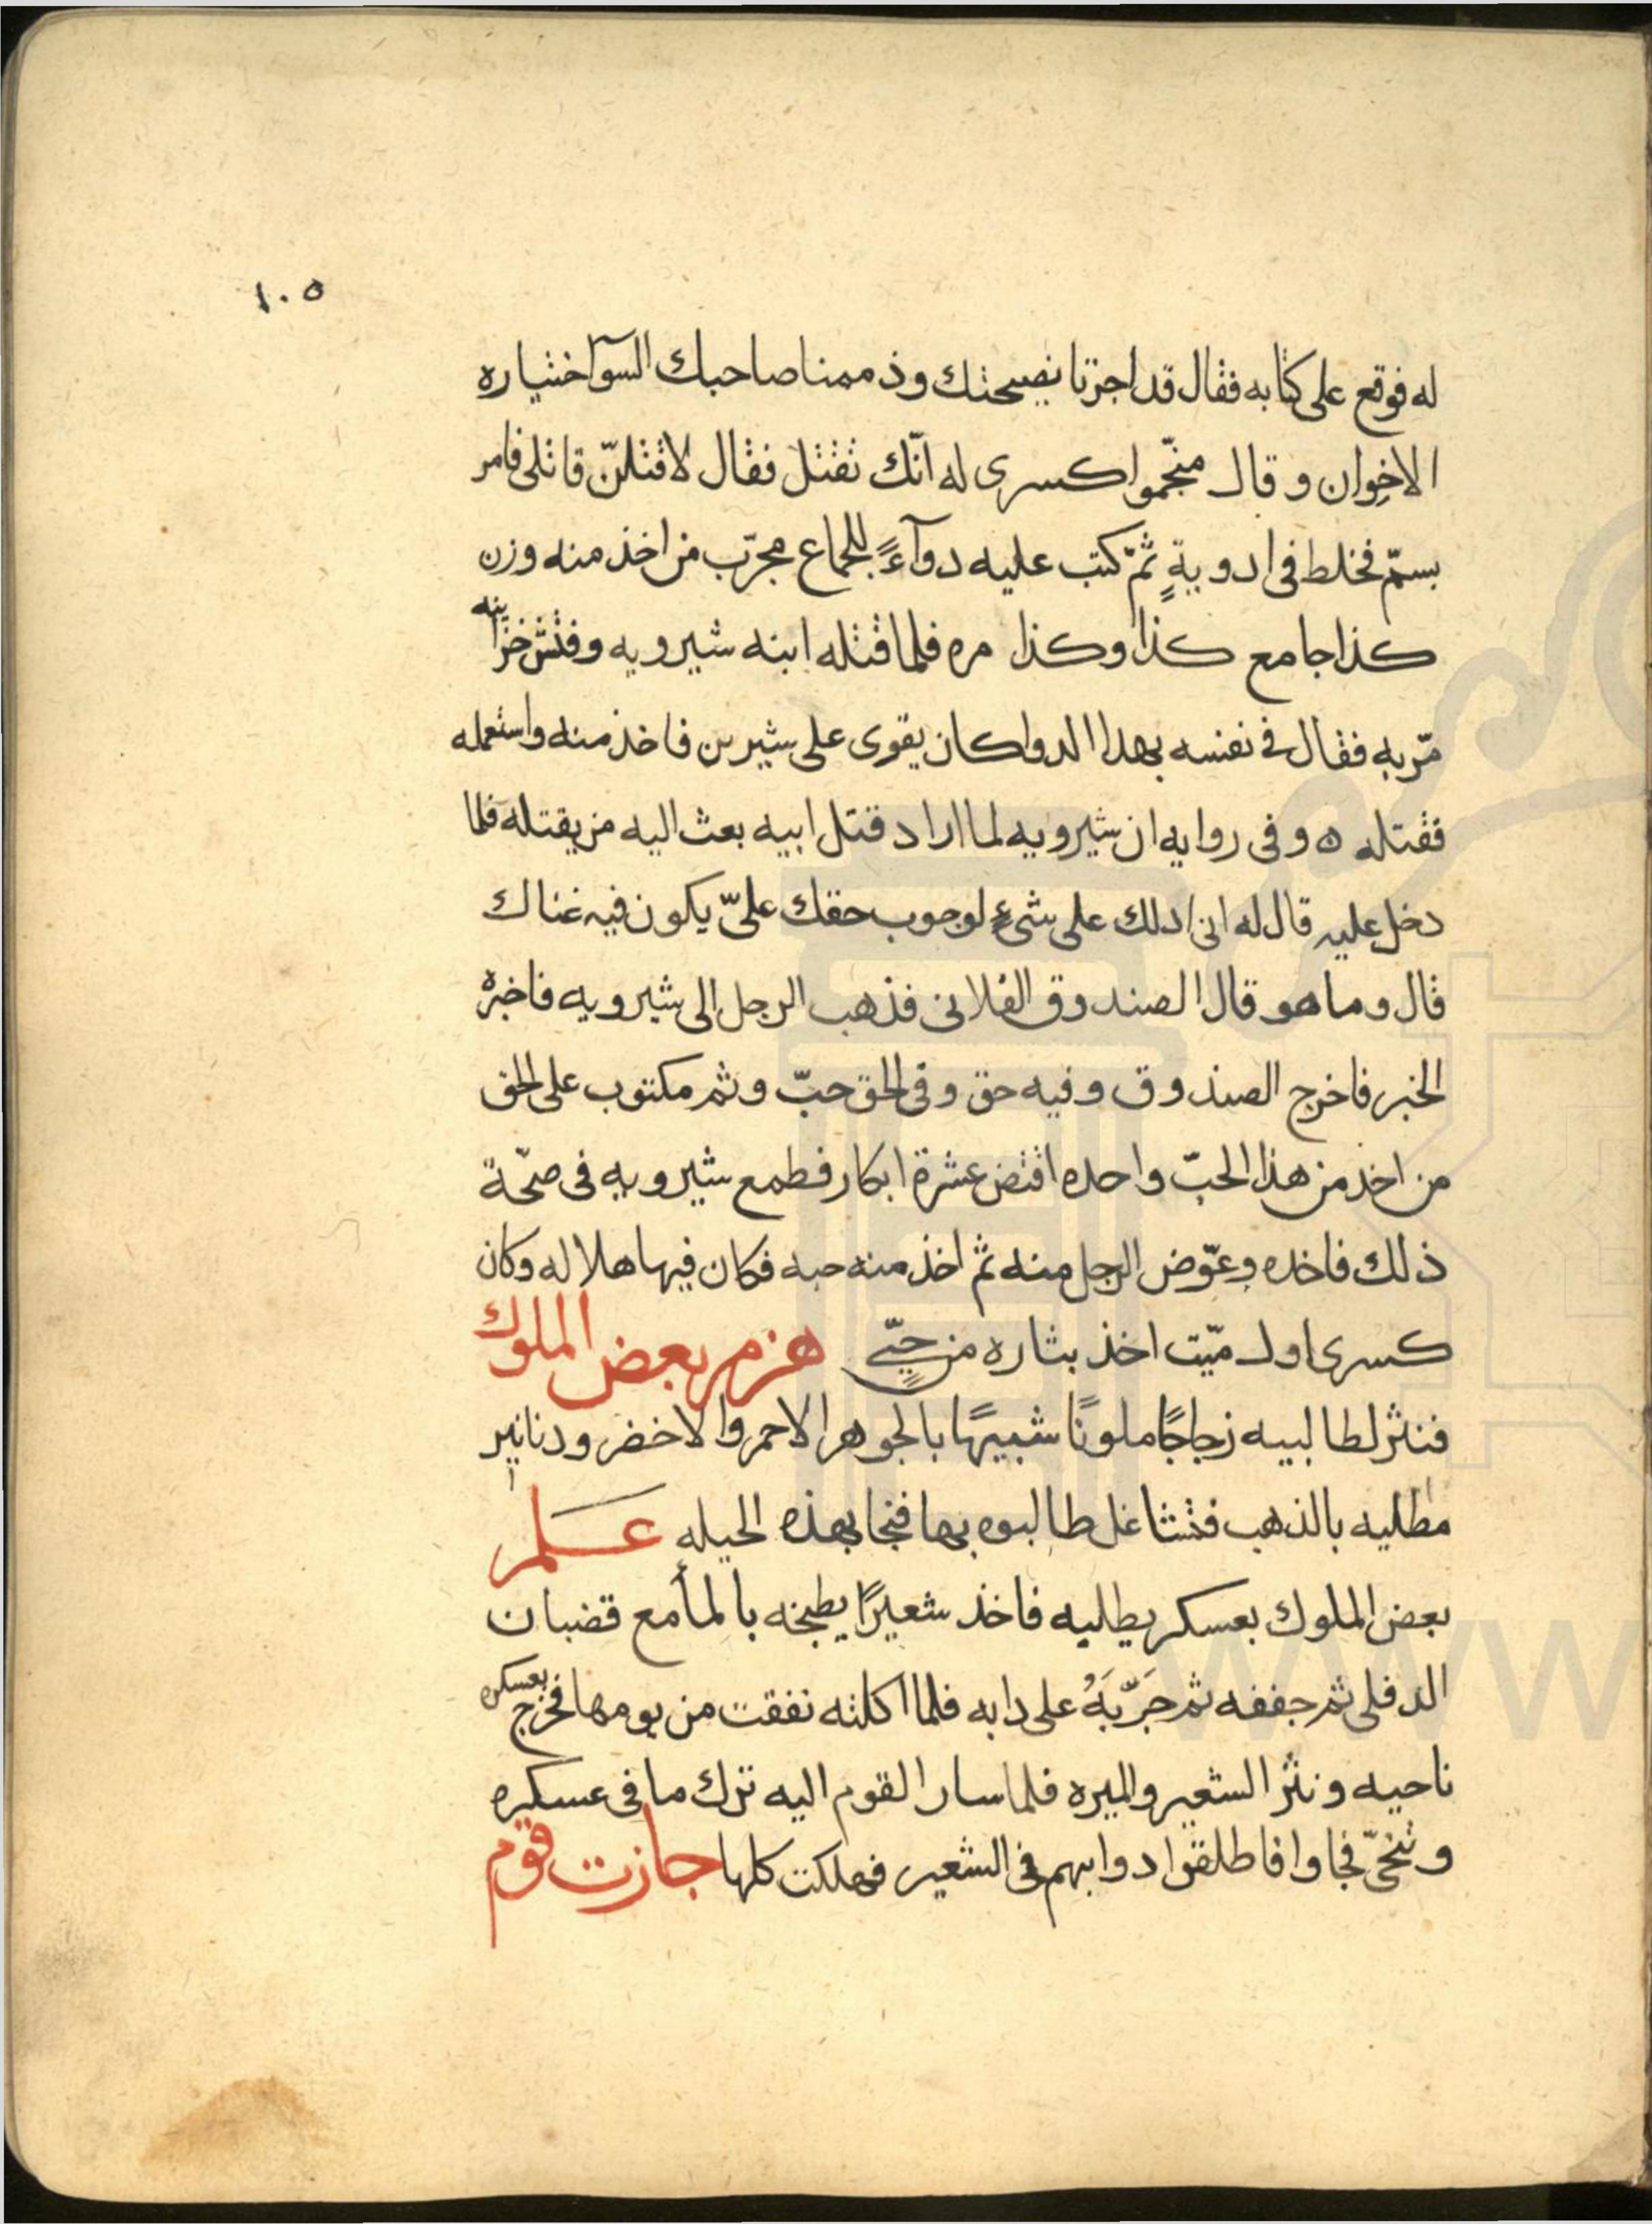 ١٠٥
له فوقع على كتابه فقال قد اجزنا نصيحتك وذممنا صاحبك السوآ اختياره
الاخوان وقال منجّموا كسرى له انّك تقتل فقال لاقتلنّ قاتلى فامر
بسمّ فخلط فى ادويةٍ ثمّ كتب عليه دوآءً للجماع مجرّب من اخذ منه وزن
كذا جامع كذا وكذا مره فلما قتله ابنه شيرويه وفتش خزاينه
مرّ به فقال فى نفسه بهذا الدوا كان يقوى على شيرين فاخذ منه واستعمله
فقتله ه وفى روايه ان شيرويه لما اراد قتل ابيه بعث اليه من يقتله فلما
دخل عليه قال له انى ادلك على شىءٍ لوجوب حقك علىّ يكون فيه غناك
قال وما هو قال الصندوق الفلانى فذهب الرجل الى شيرويه فاخبره
الخبر فاخرج الصندوق وفيه حق وفى الحق حبّ وثم مكتوب على الحق
من اخذ من هذا الحبّ واحده افتض عشرة ابكار فطمع شيرويه فى صحّة
ذلك فاخذه وعوّض الرجل منه ثم اخذ منه حبه فكان فيها هلاله وكان
كسرى اول ميّت اخذ بثاره من حىٍّ هزم بعض الملوك
فنثر لطالبيه زجاجًا ملونًا شبيهًا بالجوهر الاحمر والاخضر ودنانير
مطليه بالذهب فتشاغل طالبوه بها فنجا بهذه الحيله علم
بعض الملوك بعسكر يطلبه فاخذ شعيرًا يطبخه بالمأ مع قضبان
الدفلى ثم جففه ثم جَرّبَهُ على دابه فلما اكلته نفقت من يومها فخرج بعسكره
ناحيه ونثر الشعير والميره فلما سار القوم اليه ترك ما فى عسكره
وتنحّى فجاوا فاطلقوا دوابهم فى الشعير فهلكت كلها جازت قوم